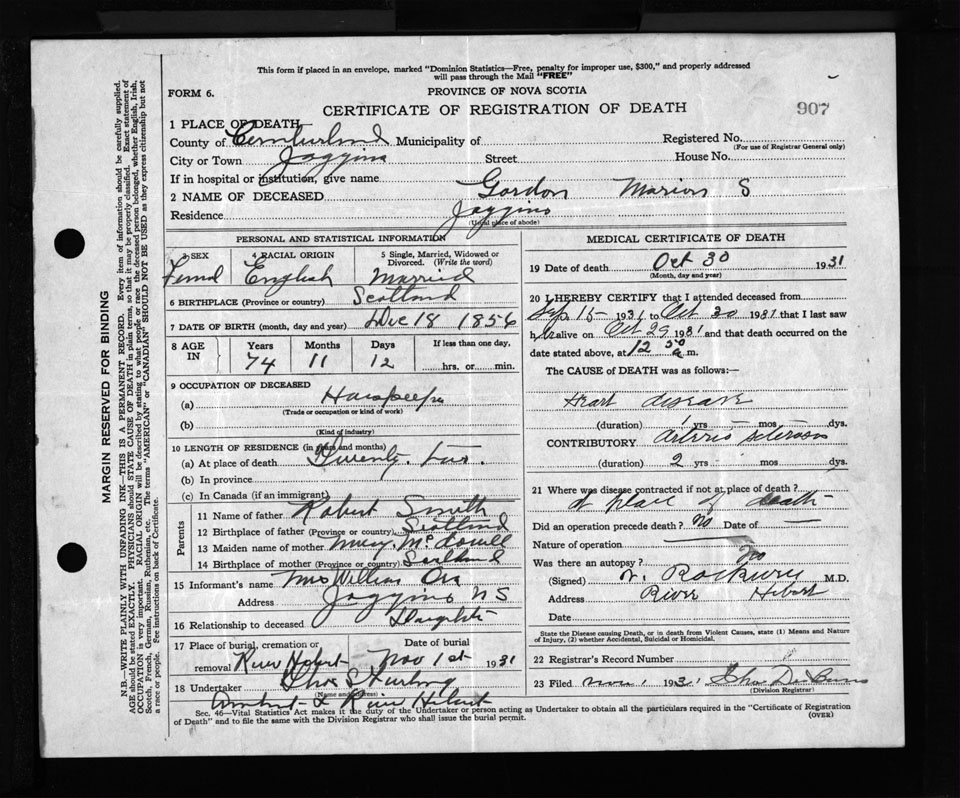 This form if placed in an envelope, marked "Dominion Statistics—Free, penalty for improper use, $300," and properly addressed
will pass through the Mail "FREE"
FORM 6.
PROVINCE OF NOVA SCOTIA
CERTIFICATE OF REGISTRATION OF DEATH
907
1 PLACE OF DEATH
County of Cumberland Municipality of
Registered No.
(For use of Registrar General only)
City or Town Joggins Street House No.
If in hospital or institution, give name
2 NAME OF DECEASED Gordon Marion S
Residence Joggins
(Usual place of abode)
PERSONAL AND STATISTICAL INFORMATION
3 SEX 4 RACIAL ORIGIN 5 Single, Married, Widowed or
Divorced. (Write the word)
English Married
6 BIRTHPLACE (Province or country) Scotland
7 DATE OF BIRTH (month, day and year) Dec 18 1856
8 AGE IN Years Months Days If less than one day,
74 11 12 hrs. or min.
9 OCCUPATION OF DECEASED
(a) Housekeeper
(Trade or occupation or kind of work)
(b)
(Kind of industry)
10 LENGTH OF RESIDENCE (in years and months)
(a) At place of death Twenty
(b) In province
(c) In Canada (if an immigrant)
Parents
11 Name of father Robert Smith
12 Birthplace of father (Province or country) Scotland
13 Maiden name of mother Mary McDowell
14 Birthplace of mother (Province or country) Scotland
15 Informant's name Mrs William Orr
Address Joggins N S
16 Relationship to deceased Daughter
17 Place of burial, cremation or Date of burial
removal River Hebert Nov 1st 1931
18 Undertaker
(Name and address)
Amherst & River Hebert
MEDICAL CERTIFICATE OF DEATH
19 Date of death Oct 30 1931
(Month, day and year)
20 I HEREBY CERTIFY that I attended deceased from
Sep 15 1931 to Oct 30 1931 that I last saw
her alive on Oct 29 1931 and that death occurred on
date stated above, at 12 30 a m.
The CAUSE of DEATH was as follows:—
Heart disease
(duration) 1 yrs mos dys.
CONTRIBUTORY Arterio sclerosis
(duration) 2 yrs - mos dys.
21 Where was disease contracted if not at place of death?
at place of death
Did an operation precede death? no Date of —
Nature of operation
Was there an autopsy? no
(Signed) Rockwell M.D.
Address River Hebert
Date
State the Disease causing Death, or in death from Violent Causes, state (1) Means and Nature
of Injury, (2) whether Accidental, Suicidal or Homicidal.
22 Registrar's Record Number
23 Filed Nov 1 1931
(Division Registrar)
Sec. 46—Vital Statistics Act makes it the duty of the Undertaker or person acting as Undertaker to obtain all the particulars required in the "Certificate of Registration
of Death" and to file the same with the Division Registrar who shall issue the burial permit.
(OVER)
MARGIN RESERVED FOR BINDING
N.B.—WRITE PLAINLY WITH UNFADING INK—THIS IS A PERMANENT RECORD. Every item of information should be carefully supplied.
AGE should be stated EXACTLY. PHYSICIANS should STATE CAUSE OF DEATH in plain terms, so that it may be properly classified. Exact statement of
OCCUPATION is very important. RACIAL ORIGIN will be described by stating to what people or race the deceased person belonged, whether English, Irish,
Scotch, French, German, Russian, Ruthenian, etc. The terms "AMERICAN" or "CANADIAN" SHOULD NOT BE USED as they express citizenship but not
a race or people. Fee instructions on back of Certificate.